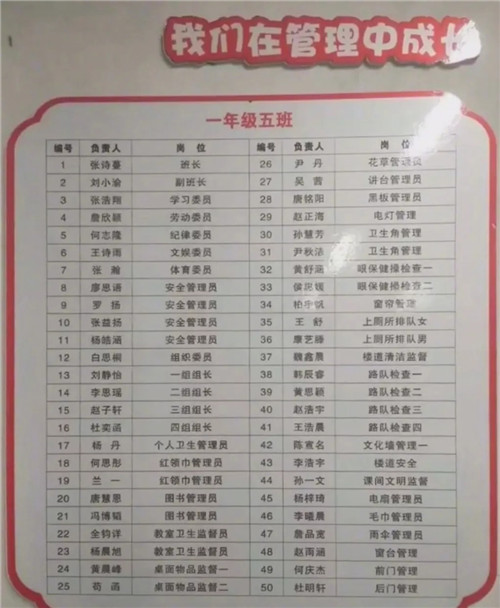 我们在管理中成长
一年级五班
编号 负责人 岗位 编号 负责人 岗位
1 张诗蔓 班长 26 尹丹 花草管理员
2 刘小渝 副班长 27 吴茜 讲台管理员
3 张浩翔 学习委员 28 唐铭阳 黑板管理员
4 詹欣颖 劳动委员 29 赵正海 电灯管理
5 何志隆 纪律委员 30 孙慧芳 卫生角管理
6 王诗雨 文娱委员 31 尹秋洁 卫生角管理
7 张瀚 体育委员 32 黄舒涵 眼保健操检查一
8 廖思语 安全管理员 33 侯思媛 眼保健操检查二
9 罗扬 安全管理员 34 帆 窗帘管理
10 张益扬 安全管理员 35 王舒 上厕所排队女
11 杨皓涵 安全管理员 36 康艺滕 上厕所排队男
12 白思桐 组织委员 37 魏鑫晨 楼道清洁监督
13 刘静怡 一组组长 38 韩辰睿 路队检查一
14 李思瑶 二组组长 39 黄思颖 路队检查二
15 赵子轩 三组组长 40 赵浩宇 路队检查三
16 杜奕函 四组组长 41 王浩晨 路队检查四
17 杨丹 个人卫生管理员 42 陈宣名 文化墙管理一
18 何思彤 红领巾管理员 43 李浩宇 楼道安全
19 兰一 红领巾管理员 44 孙一文 课间文明监督
20 唐慧恩 图书管理员 45 杨梓琦 电扇管理员
21 冯博韬 图书管理员 46 李曦晨 毛巾管理员
22 全钧洋 教室卫生监督员 47 詹品宽 雨伞管理员
23 杨晨旭 教室卫生监督员 48 赵雨涵 窗台管理
24 黄晨峰 桌面物品监督一 49 何庆杰 前门管理
25 苟函 桌面物品监督二 50 杜明轩 后门管理